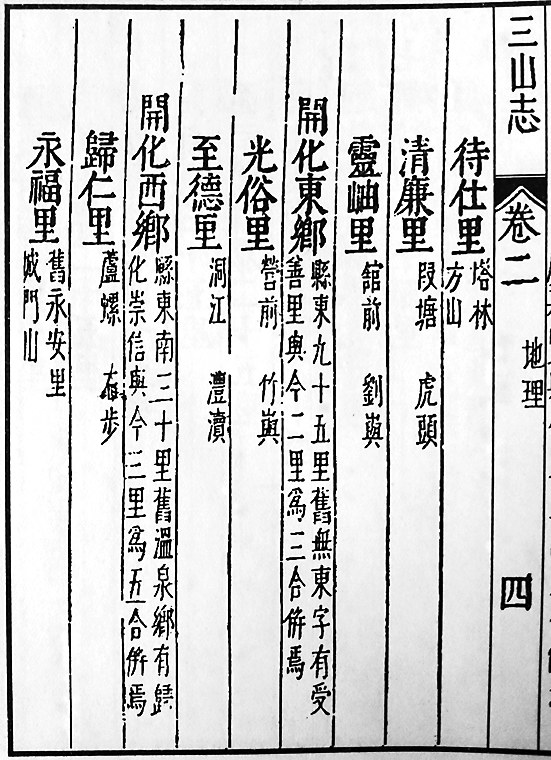 三山志
卷二
地理
四
待仕里
塔林
方山
清廉里
段塘 虎頭
靈岫里
舘前 劉㠘
開化東鄉
縣東九十五里舊無東字有受
善里與今二里爲三合倂焉
光俗里
營前 竹㠘
至德里
洞江 澧瀆
開化西鄉
縣東南三十里舊溫泉鄉有歸
化崇信與今三里爲五合倂焉
歸仁里
蘆螺 布步
永福里
舊永安里
城門山